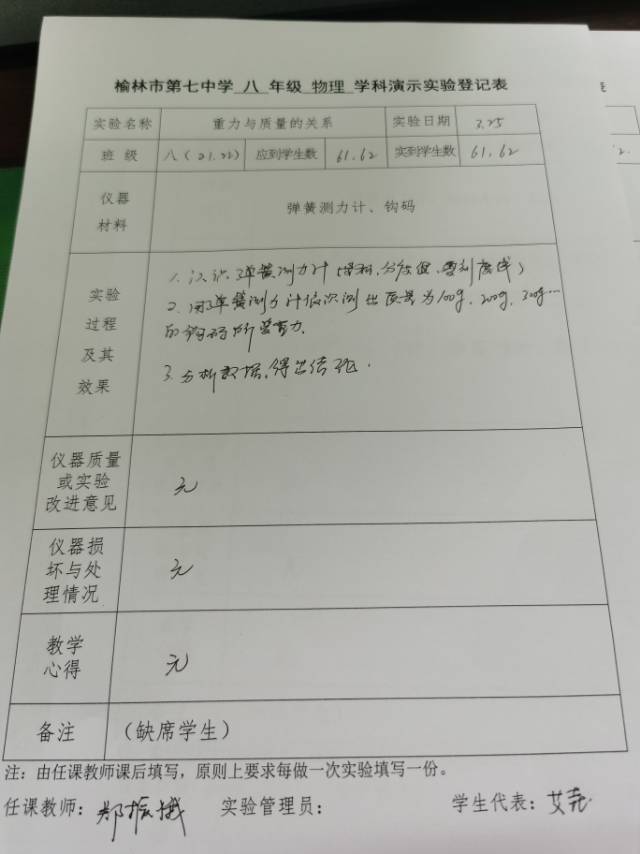 榆林市第七中学 八 年级 物理 学科演示实验登记表
实验名称 重力与质量的关系 实验日期 3.25
班 级 八(21.22) 应到学生数 61.62 实到学生数 61.62
仪器
材料
弹簧测力计、钩码
实验
过程
及其
效果
1.认识弹簧测力计(
2.用弹簧测力计依次测出质量为100g、200g、300g…
的钩码所受重力.
3.分析数据,得出结论.
仪器质量
或实验
改进意见
无
仪器损
坏与处
理情况
无
教学
心得
无
备注 (缺席学生)
注:由任课教师课后填写,原则上要求每做一次实验填写一份。
任课教师: 郑振 实验管理员: 学生代表: 艾尧